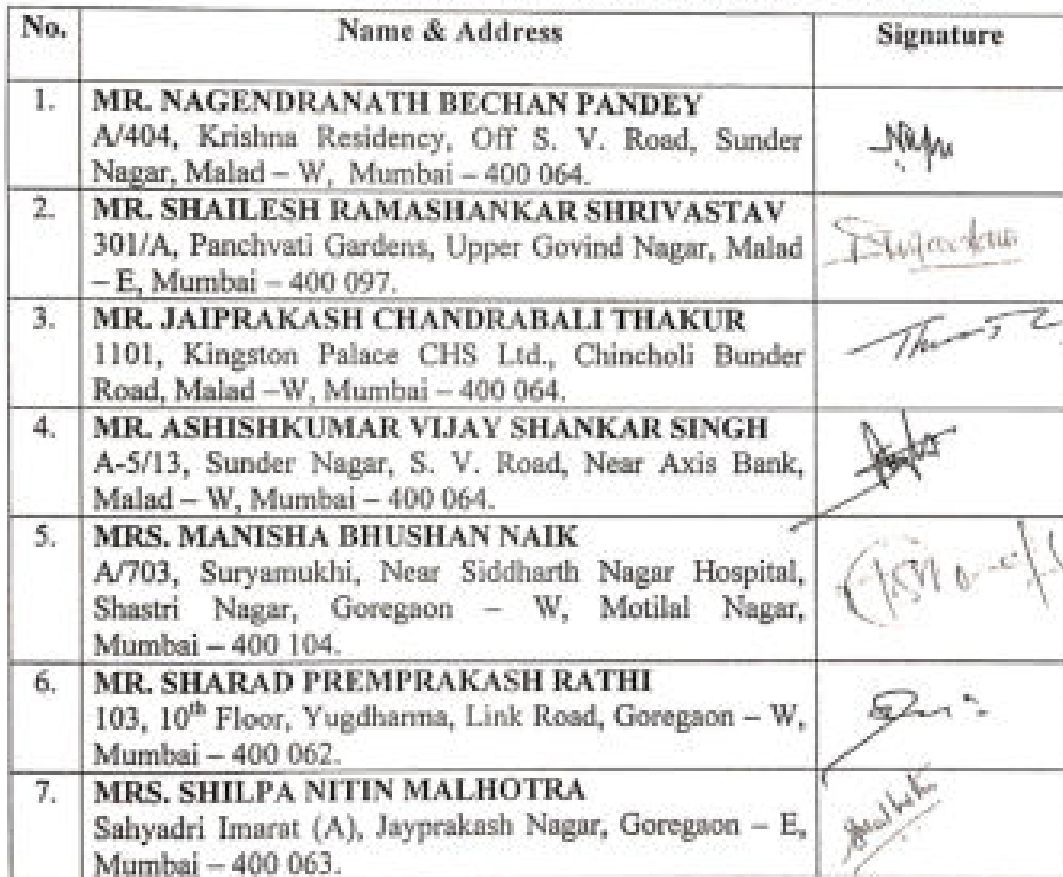 No. Name & Address Signature
1. MR. NAGENDRANATH BECHAN PANDEY
A/404, Krishna Residency, Off S. V. Road, Sunder
Nagar, Malad – W, Mumbai – 400 064.
2. MR. SHAILESH RAMASHANKAR SHRIVASTAV
301/A, Panchvati Gardens, Upper Govind Nagar, Malad
– E, Mumbai – 400 097.
3. MR. JAIPRAKASH CHANDRABALI THAKUR
1101, Kingston Palace CHS Ltd., Chincholi Bunder
Road, Malad –W, Mumbai – 400 064.
4. MR. ASHISHKUMAR VIJAY SHANKAR SINGH
A-5/13, Sunder Nagar, S. V. Road, Near Axis Bank,
Malad – W, Mumbai – 400 064.
5. MRS. MANISHA BHUSHAN NAIK
A/703, Suryamukhi, Near Siddharth Nagar Hospital,
Shastri Nagar, Goregaon – W, Motilal Nagar,
Mumbai – 400 104.
6. MR. SHARAD PREMPRAKASH RATHI
103, 10th Floor, Yugdharma, Link Road, Goregaon – W,
Mumbai – 400 062.
7. MRS. SHILPA NITIN MALHOTRA
Sahyadri Imarat (A), Jayprakash Nagar, Goregaon – E,
Mumbai – 400 063.